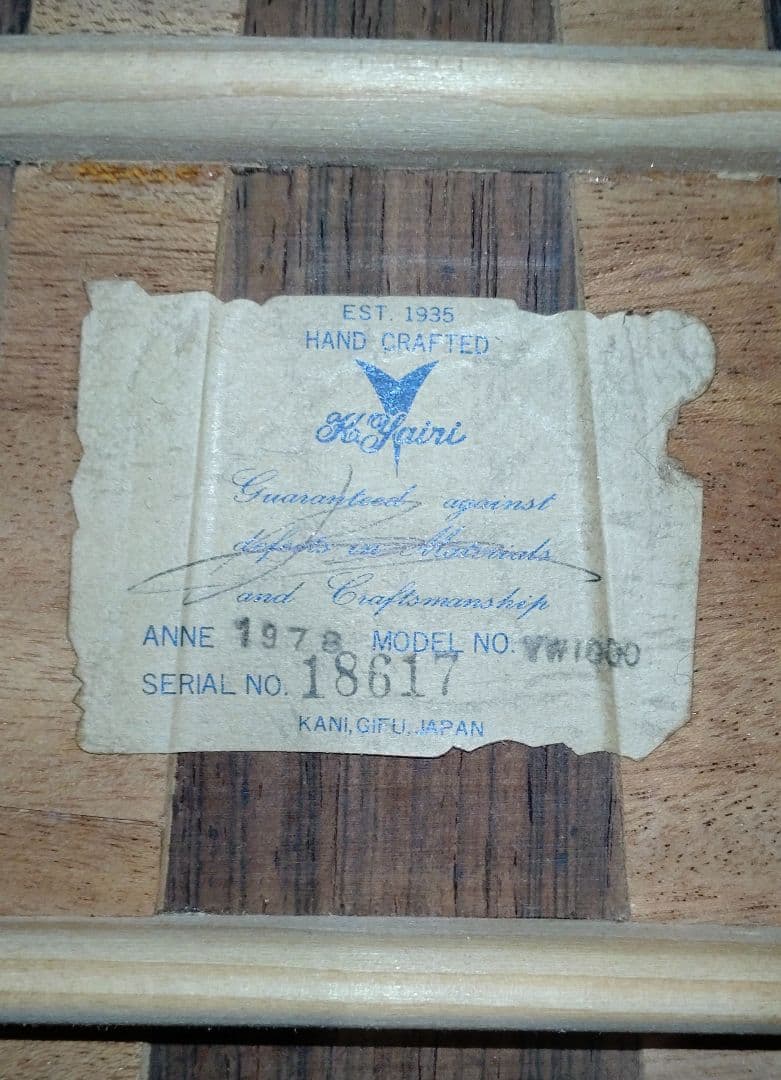 EST. 1935
HAND CRAFTED
K. Yairi
Guaranteed against
defects in Materials
and Craftsmanship
ANNE 1978 MODEL NO. YW1000
SERIAL NO. 18617
KANI, GIFU, JAPAN